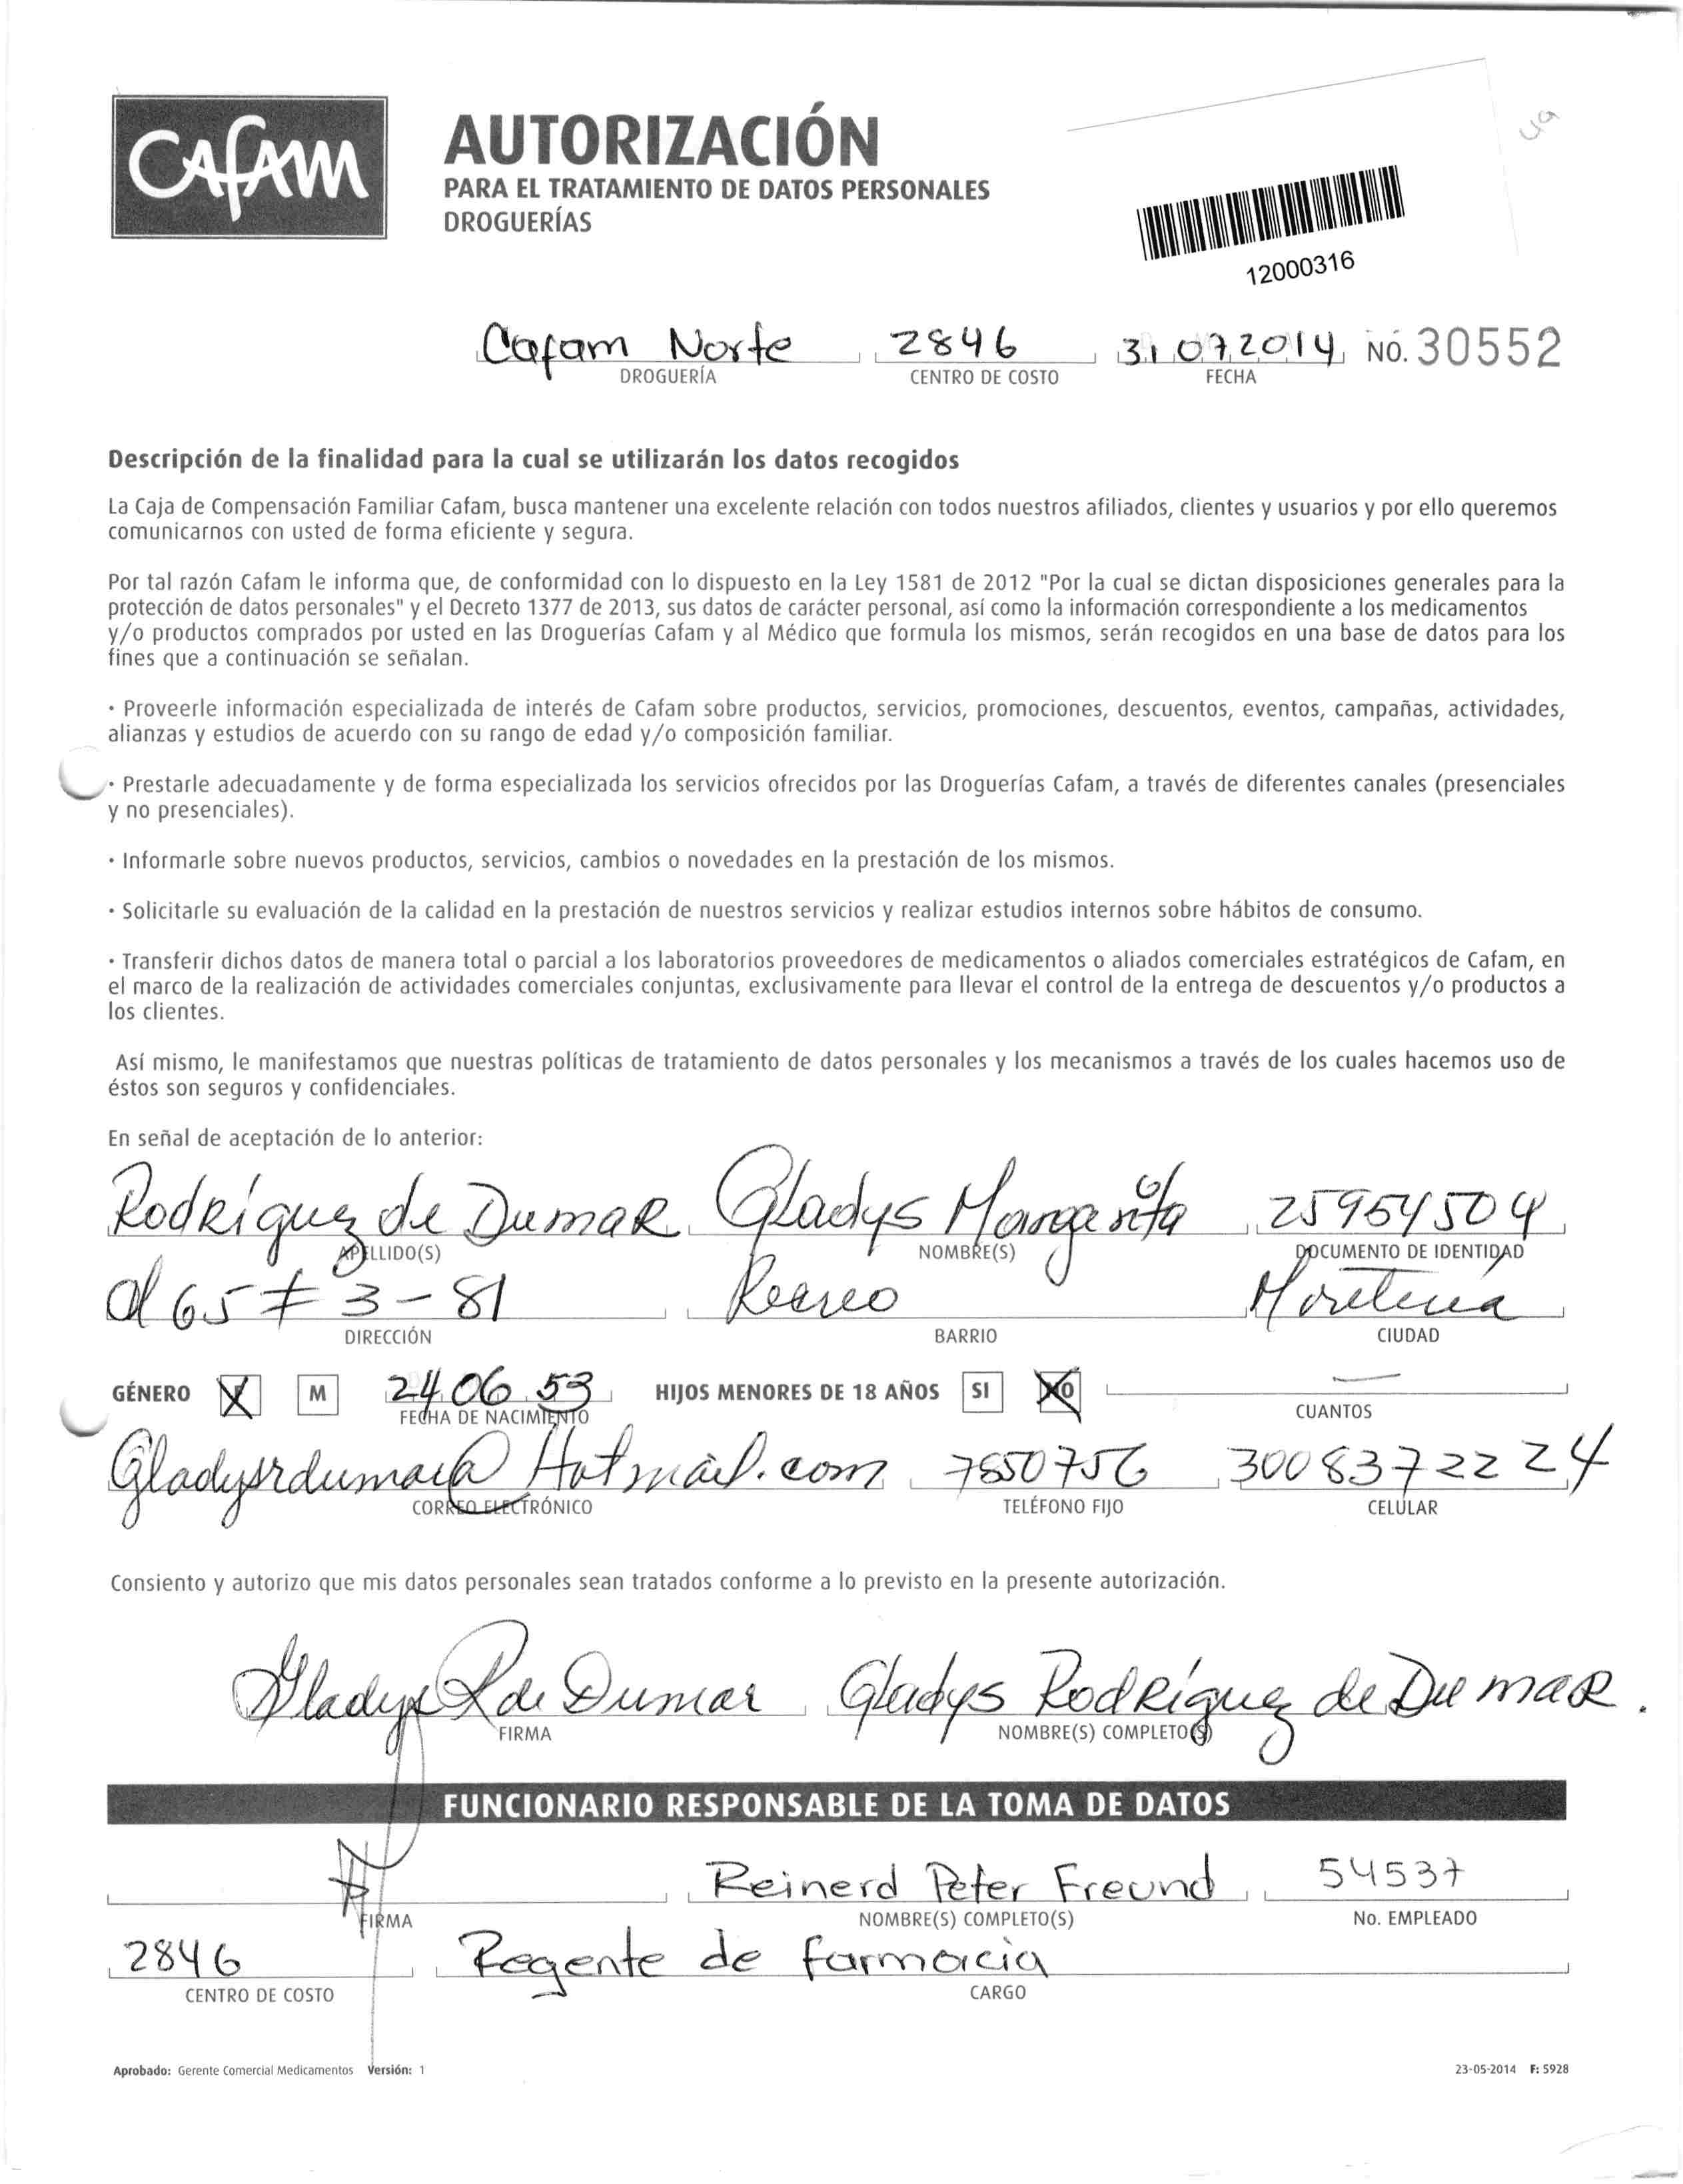 Cafam
AUTORIZACIÓN
PARA EL TRATAMIENTO DE DATOS PERSONALES
DROGUERÍAS
12000316
Cafam Norte 2846 31 07 2014 NO. 30552
DROGUERÍA CENTRO DE COSTO FECHA
Descripción de la finalidad para la cual se utilizarán los datos recogidos
La Caja de Compensación Familiar Cafam, busca mantener una excelente relación con todos nuestros afiliados, clientes y usuarios y por ello queremos
comunicarnos con usted de forma eficiente y segura.
Por tal razón Cafam le informa que, de conformidad con lo dispuesto en la Ley 1581 de 2012 "Por la cual se dictan disposiciones generales para la
protección de datos personales" y el Decreto 1377 de 2013, sus datos de carácter personal, así como la información correspondiente a los medicamentos
y/o productos comprados por usted en las Droguerías Cafam y al Médico que formula los mismos, serán recogidos en una base de datos para los
fines que a continuación se señalan.
· Proveerle información especializada de interés de Cafam sobre productos, servicios, promociones, descuentos, eventos, campañas, actividades,
alianzas y estudios de acuerdo con su rango de edad y/o composición familiar.
· Prestarle adecuadamente y de forma especializada los servicios ofrecidos por las Droguerías Cafam, a través de diferentes canales (presenciales
y no presenciales).
· Informarle sobre nuevos productos, servicios, cambios o novedades en la prestación de los mismos.
· Solicitarle su evaluación de la calidad en la prestación de nuestros servicios y realizar estudios internos sobre hábitos de consumo.
· Transferir dichos datos de manera total o parcial a los laboratorios proveedores de medicamentos o aliados comerciales estratégicos de Cafam, en
el marco de la realización de actividades comerciales conjuntas, exclusivamente para llevar el control de la entrega de descuentos y/o productos a
los clientes.
Así mismo, le manifestamos que nuestras políticas de tratamiento de datos personales y los mecanismos a través de los cuales hacemos uso de
éstos son seguros y confidenciales.
En señal de aceptación de lo anterior:
Rodríguez de Dumar Gladys Margarita 25954504
APELLIDO(S) NOMBRE(S) DOCUMENTO DE IDENTIDAD
Cl 65 # 3-81 Recreo Montería
DIRECCIÓN BARRIO CIUDAD
GÉNERO X M 24 06 53 HIJOS MENORES DE 18 AÑOS SI NO —
FECHA DE NACIMIENTO CUANTOS
Gladysrdumar@Hotmail.com 7850756 3008372224
CORREO ELECTRÓNICO TELÉFONO FIJO CELULAR
Consiento y autorizo que mis datos personales sean tratados conforme a lo previsto en la presente autorización.
Gladys R de Dumar Gladys Rodríguez de Dumar.
FIRMA NOMBRE(S) COMPLETO(S)
FUNCIONARIO RESPONSABLE DE LA TOMA DE DATOS
Reinerd Peter Freund 54537
FIRMA NOMBRE(S) COMPLETO(S) No. EMPLEADO
2846 Regente de farmacia
CENTRO DE COSTO CARGO
Aprobado: Gerente Comercial Medicamentos Versión: 1 23-05-2014 F: 5928